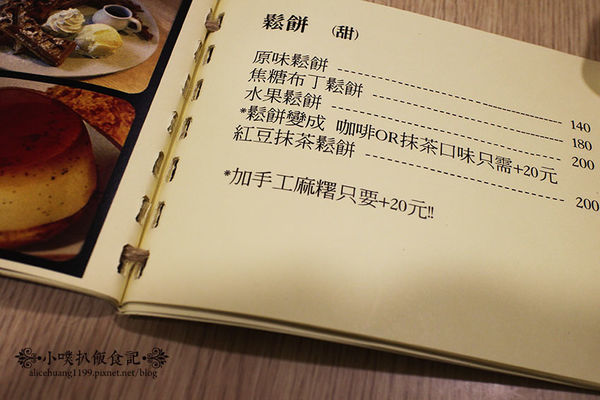 鬆餅 (甜)
原味鬆餅 140
焦糖布丁鬆餅 180
水果鬆餅 200
*鬆餅變成 咖啡OR抹茶口味只需+20元
紅豆抹茶鬆餅 200
*加手工麻糬只要+20元!!
小噗扒飯食記
alicehuang1199.pixnet.net/blog